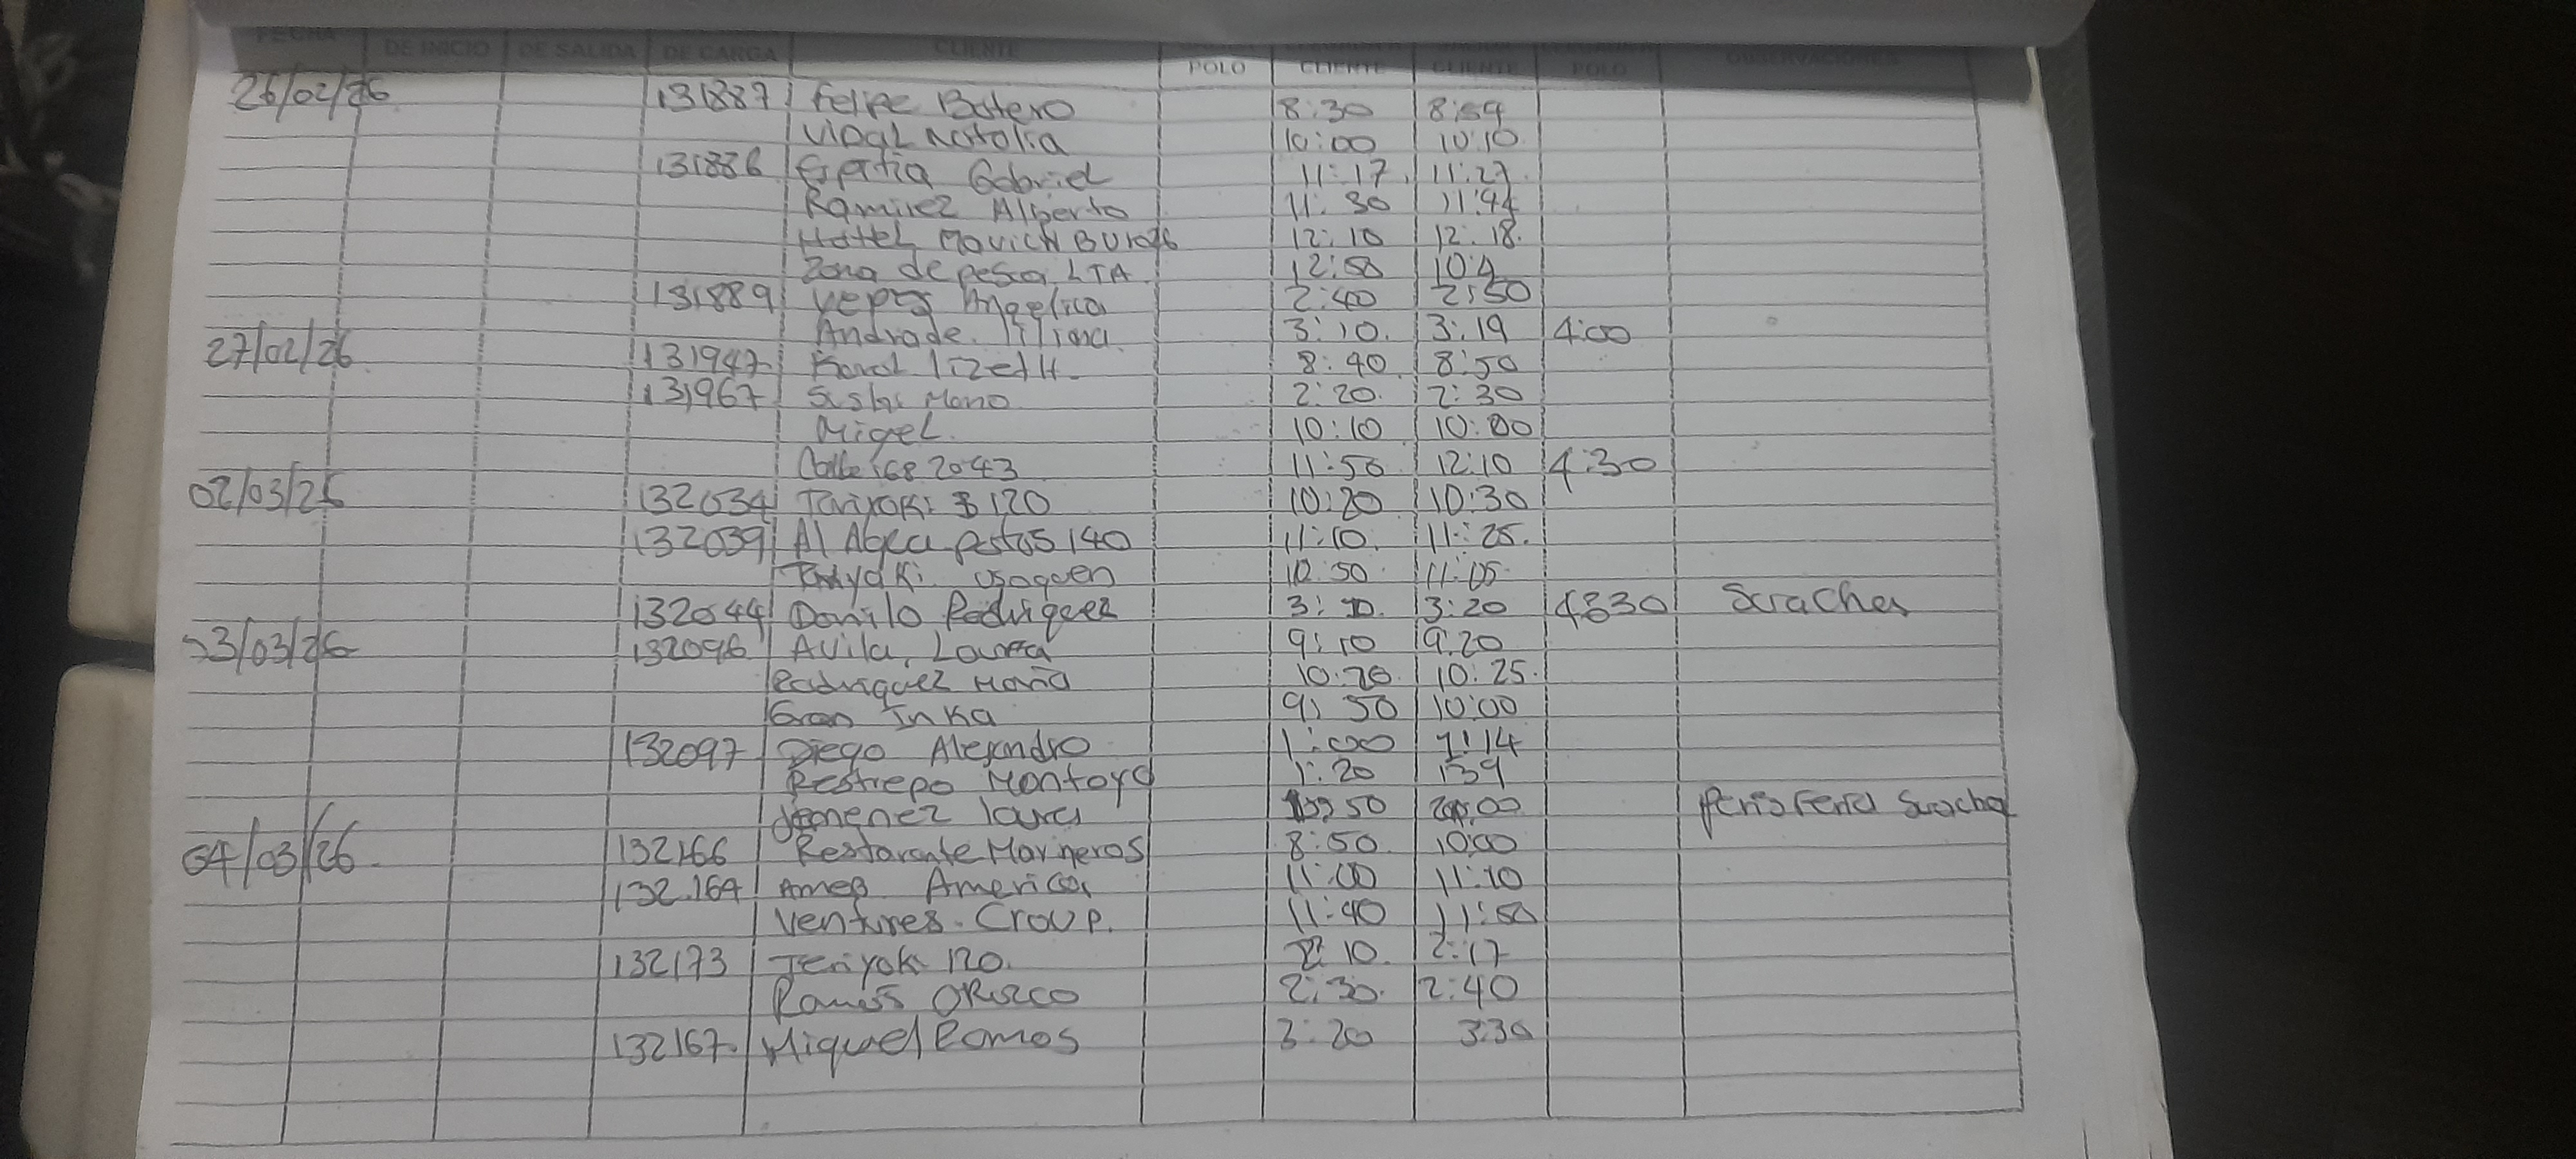 FECHA DE INICIO DE SALIDA DE CARGA CLIENTE POLO CLIENTE CLIENTE POLO OBSERVACIONES
26/02/26 131887 Felipe Botero 8:30 8:59
Vidal Natalia 10:00 10:10
131886 Gabriel 11:17 11:27
Ramirez Alberto 11:30 11:44
Hottel Movich 12:10 12:18
Zona de pesca LTA 12:50
131889 Yepes Angelica 2:40 2:50
Andrade 3:10 3:19 4:00
27/02/26 131947 Karol lizeth 8:40 8:50
131967 2:20 2:30
Migel 10:10
Calle 168 20 43 11:50 12:10 4:30
02/03/26 132034 120 10:20 10:30
132039 Al Agua patos 140 11:10 11:25
usaquen 10:50 11:05
132044 Danilo Rodriguez 3:20 Suaches
03/03/26 132096 Avila, Laura 9:10 9:20
Rodriguez Maria 10:20 10:25
Gran Inka 9:50 10:00
132097 Diego Alejandro 1:00 1:14
Restrepo Montoya 1:20 139
Jemenez laura 50 Periferia Suacha
04/03/26 132166 Restarante Marineros 8:50 10:00
132.164 America 11:00 11:10
Ventures Croup. 11:40 11:50
132173 Teriyoki 120. 2:10 2:17
Orozco 2:30 2:40
132167 Miquel Ramos 3:20 3:30